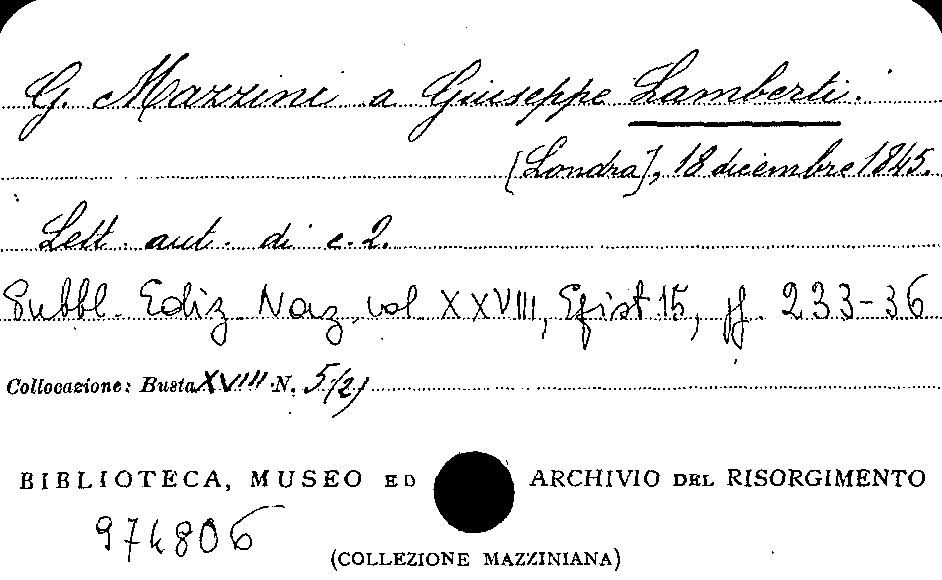 G. Mazzini a Giuseppe Lamberti.
[Londra], 18 dicembre 1845.
Lett. aut. di c. 2.
Pubbl. Ediz. Naz. vol XXVIII, Epist. 15, pp. 233-36
Collocazione: Busta XVIII N. 5(2)
BIBLIOTECA, MUSEO ED ARCHIVIO DEL RISORGIMENTO
974806
(COLLEZIONE MAZZINIANA)